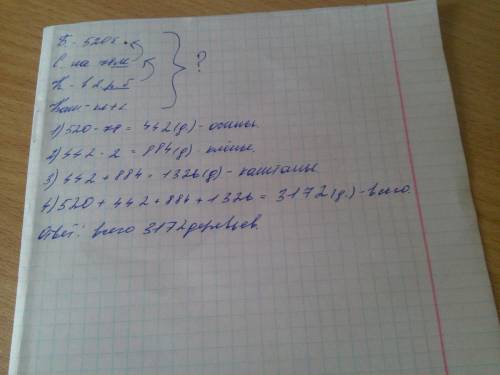 Б - 520 г.
О. на 78 м
К - в 2 р. б
Каш - кл + о
?
1) 520 - 78 = 442 (д) - осины.
2) 442 · 2 = 884 (д) - клёны.
3) 442 + 884 = 1326 (д) - каштаны.
4) 520 + 442 + 884 + 1326 = 3172 (д.) - всего.
Ответ: всего 3172 деревьев.